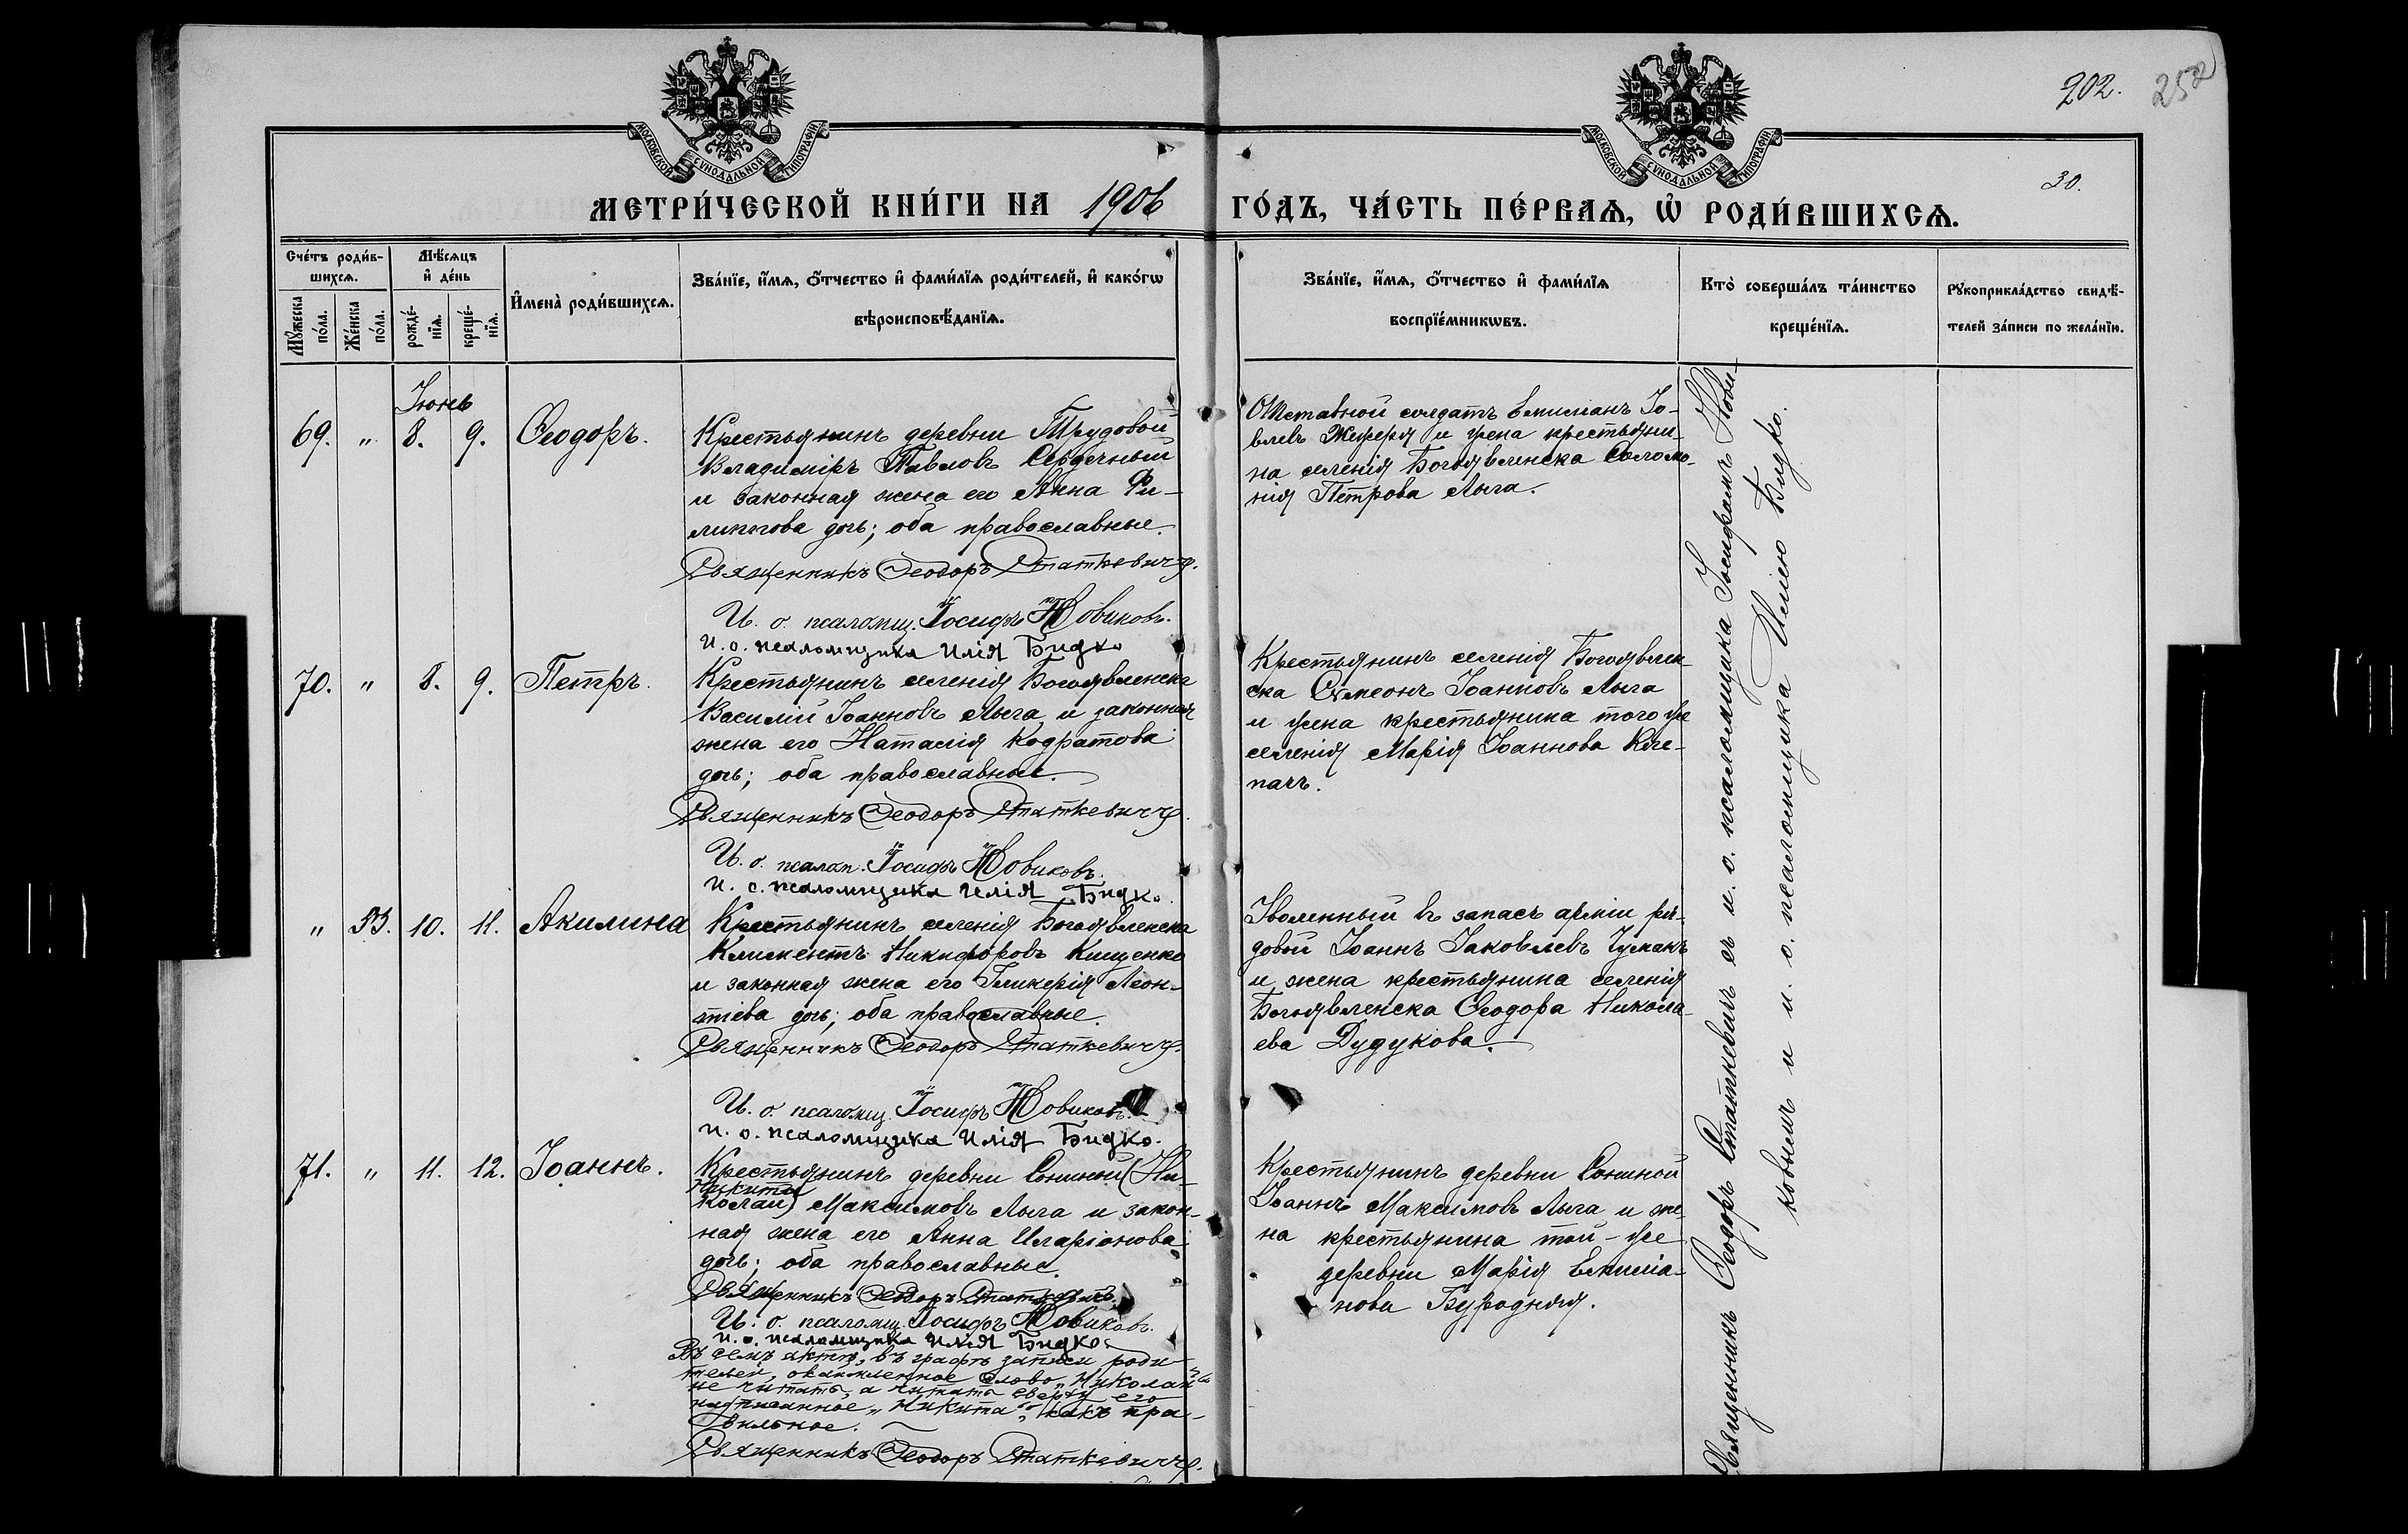 202. 252
30.
МОСКОВСКОЙ СУНОДАЛЬНОЙ ТИПОГРАФІИ
МОСКОВСКОЙ СУНОДАЛЬНОЙ ТИПОГРАФІИ
МЕТРИ́ЧЕСКОЙ КНИ́ГИ НА 1906 ГО́ДЪ, ЧА́СТЬ ПЕ́РВАѦ, Ѡ РОДИ́ВШИХСѦ.
Сче́тъ роди́в-
шихсѧ.
Мꙋжеска по́ла.
Же́нска по́ла.
Мѣ́сѧцъ
и҆ де́нь
рожде́-
нїѧ.
креще́-
нїѧ.
И҆мена̀ роди́вшихсѧ.
Зва́нїе, и҆́мѧ, ѻ҆́тчество и҆ фами́лїѧ роди́телей, и҆ како́гѡ
вѣроисповѣ́данїѧ.
Зва́нїе, и҆́мѧ, ѻ҆́тчество и҆ фами́лїѧ
воспрїе́мникѡвъ.
Кто̀ соверша́лъ та́инство
креще́нїѧ.
Рꙋкоприкла́дство свидѣ́-
телей за́писи по жела́нїю.
Іюнь
69. " 8. 9. Ѳеодоръ.
Крестьянинъ деревни Трудовой
Владиміръ Павловъ Сердечный
и законная жена его Анна Фи-
липпова дочь; оба православные.
Священникъ Ѳеодоръ Статкевичъ.
И. о. псаломщ. Іосифъ Новиковъ.
И. о. псаломщика Илія Бидко
Отставной солдатъ Емиліанъ Іо-
влевъ и жена крестьяни-
на селенія Богоявленска Соломо-
нія Петрова Лыга.
70. " 8. 9. Петръ.
Крестьянинъ селенія Богоявленска
Василій Іоанновъ Лыга и законная
жена его Наталія Кодратова
дочь; оба православные.
Священникъ Ѳеодоръ Статкевичъ.
И. о. псалом. Іосифъ Новиковъ.
И. о. псаломщика Илія Бидко.
Крестьянинъ селенія Богоявлен-
ска Симеонъ Іоанновъ Лыга
и жена крестьянина того же
селенія Марія Іоаннова
" 53. 10. 11. Акилина
Крестьянинъ селенія Богоявленска
Климентъ Никифоровъ Кищенко
и законная жена его Гликерія Леон-
тіева дочь; оба православные.
Священникъ Ѳеодоръ Статкевичъ.
И. о. псаломщ. Іосифъ Новиковъ.
И. о. псаломщика Илія Бидко.
Уволенный въ запасъ арміи ря-
довой Іоаннъ Іаковлевъ Чумакъ
и жена крестьянина селенія
Богоявленска Ѳеодора Никола-
ева Дудукова.
71. " 11. 12. Іоаннъ.
Крестьянинъ деревни (Ни-
Никита
колай) Максимовъ Лыга и закон-
ная жена его Анна Иларіонова
дочь; оба православные.
Священникъ Ѳеодоръ Статкевичъ.
И. о. псаломщ. Іосифъ Новиковъ.
И. о. псаломщика Илія Бидко.
Въ семъ актѣ, въ графѣ записи роди-
телей, окаймленное слово „Николай"
не читать, а читать сверху его
написанное „Никита", какъ пра-
вильное.
Священникъ Ѳеодоръ Статкевичъ.
Крестьянинъ деревни
Іоаннъ Максимовъ Лыга и же-
на крестьянина той-же
деревни Марія Емиліа-
нова
Священникъ Ѳеодоръ Статкевичъ съ и. о. псаломщика Іосифомъ Нови-
ковымъ и и. о. псаломщика Иліею Бидко.